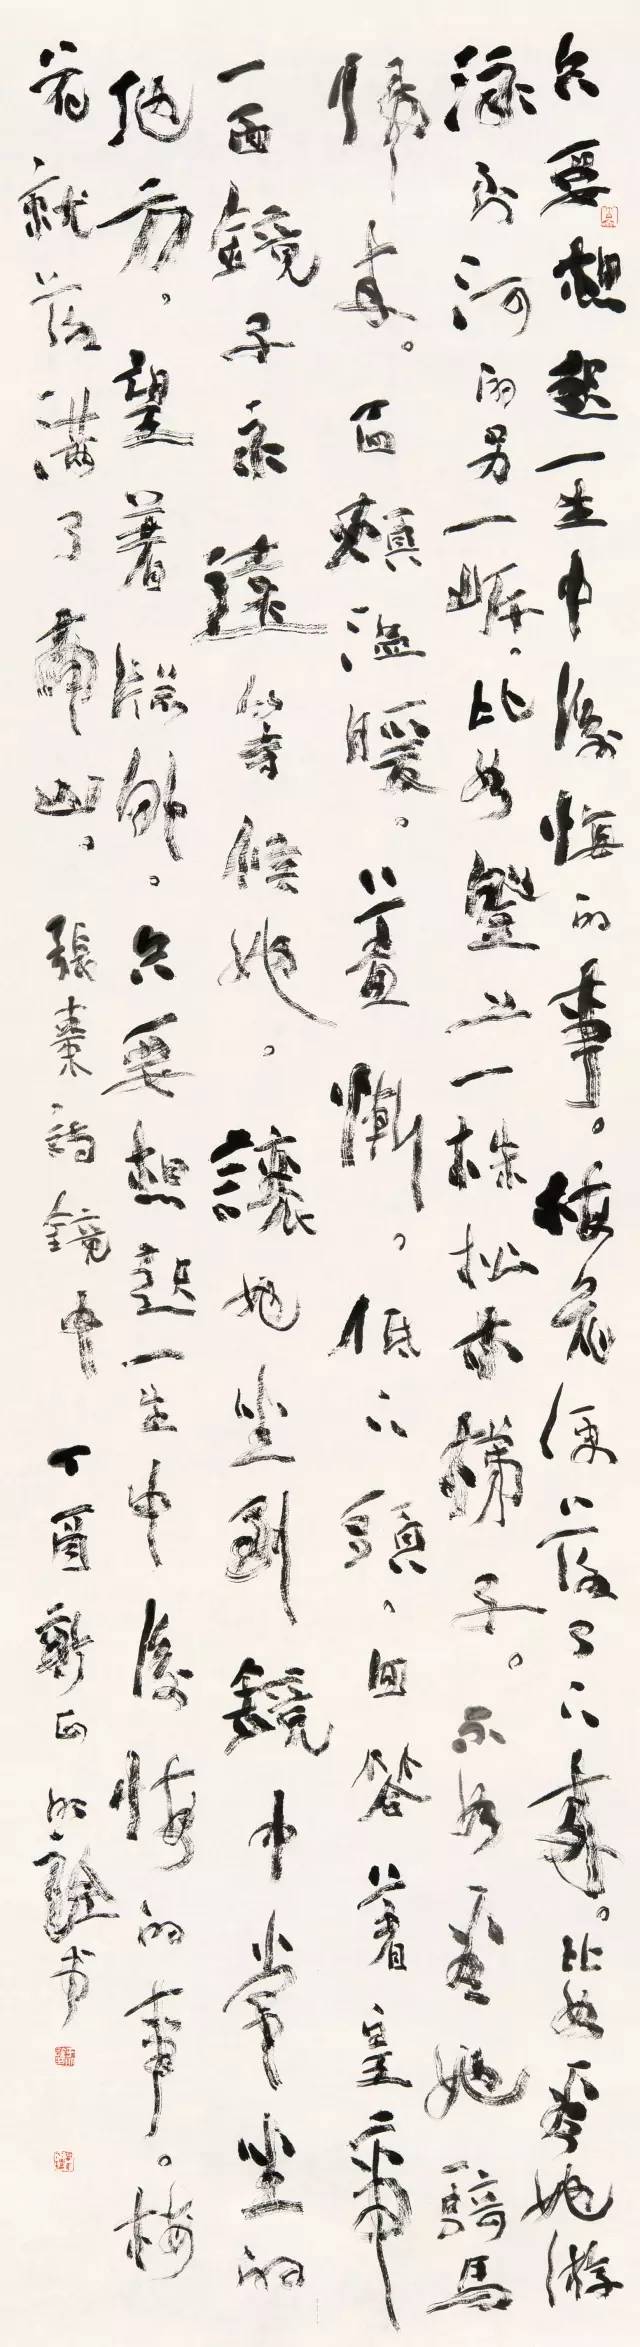 只要想起一生中後悔的事。梅花便落了下來。比如看她游
泳到河的另一岸，比如登上一株松木梯子。不如看她騎馬
歸來。面頰溫暖。羞慚。低下頭，回答着皇帝
一面鏡子永遠等候她。讓她坐到鏡中常坐的
地方。望着窗外。只要想起一生中後悔的事。梅
花就落滿了南山。張棗詩鏡中 丁酉新正 書